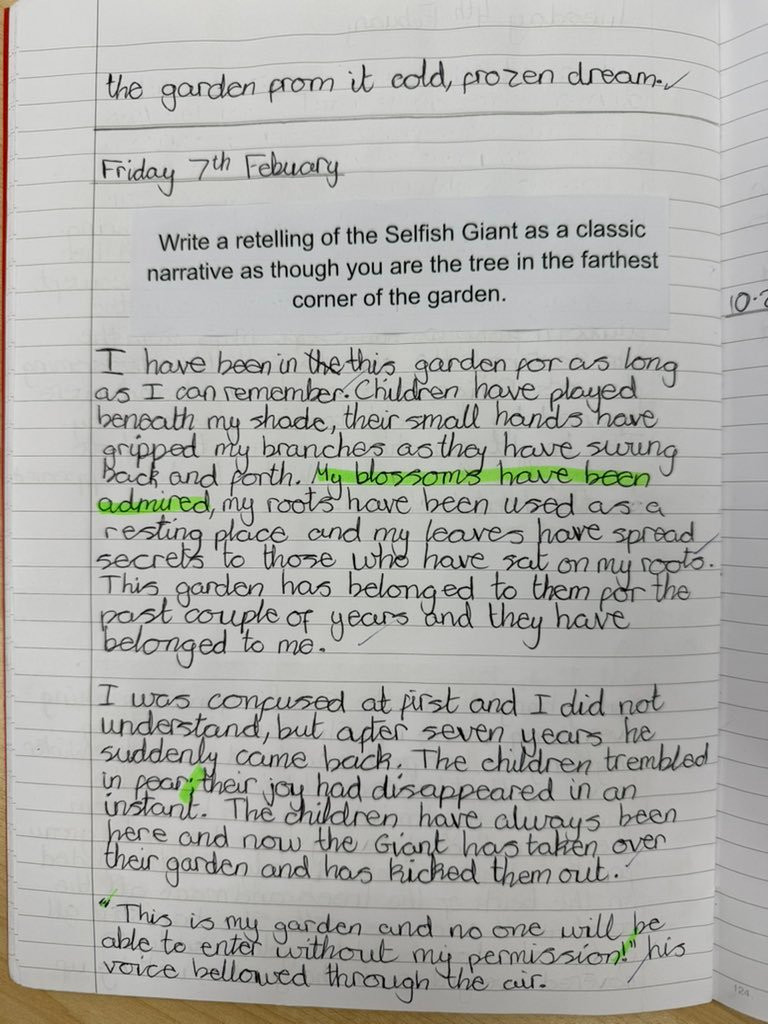 the garden from it cold, frozen dream.
Friday 7th Febuary
Write a retelling of the Selfish Giant as a classic
narrative as though you are the tree in the farthest
corner of the garden.
I have been in the this garden for as long
as I can remember. Children have played
beneath my shade, their small hands have
gripped my branches as they have swung
back and forth. My blossoms have been
admired, my roots have been used as a
resting place and my leaves have spread
secrets to those who have sat on my roots.
This garden has belonged to them for the
past couple of years and they have
belonged to me.
I was confused at first and I did not
understand, but after seven years he
suddenly came back. The children trembled
in fear; their joy had disappeared in an
instant. The children have always been
here and now the Giant has taken over
their garden and has kicked them out.
"This is my garden and no one will be
able to enter without my permission!" his
voice bellowed through the air.
124